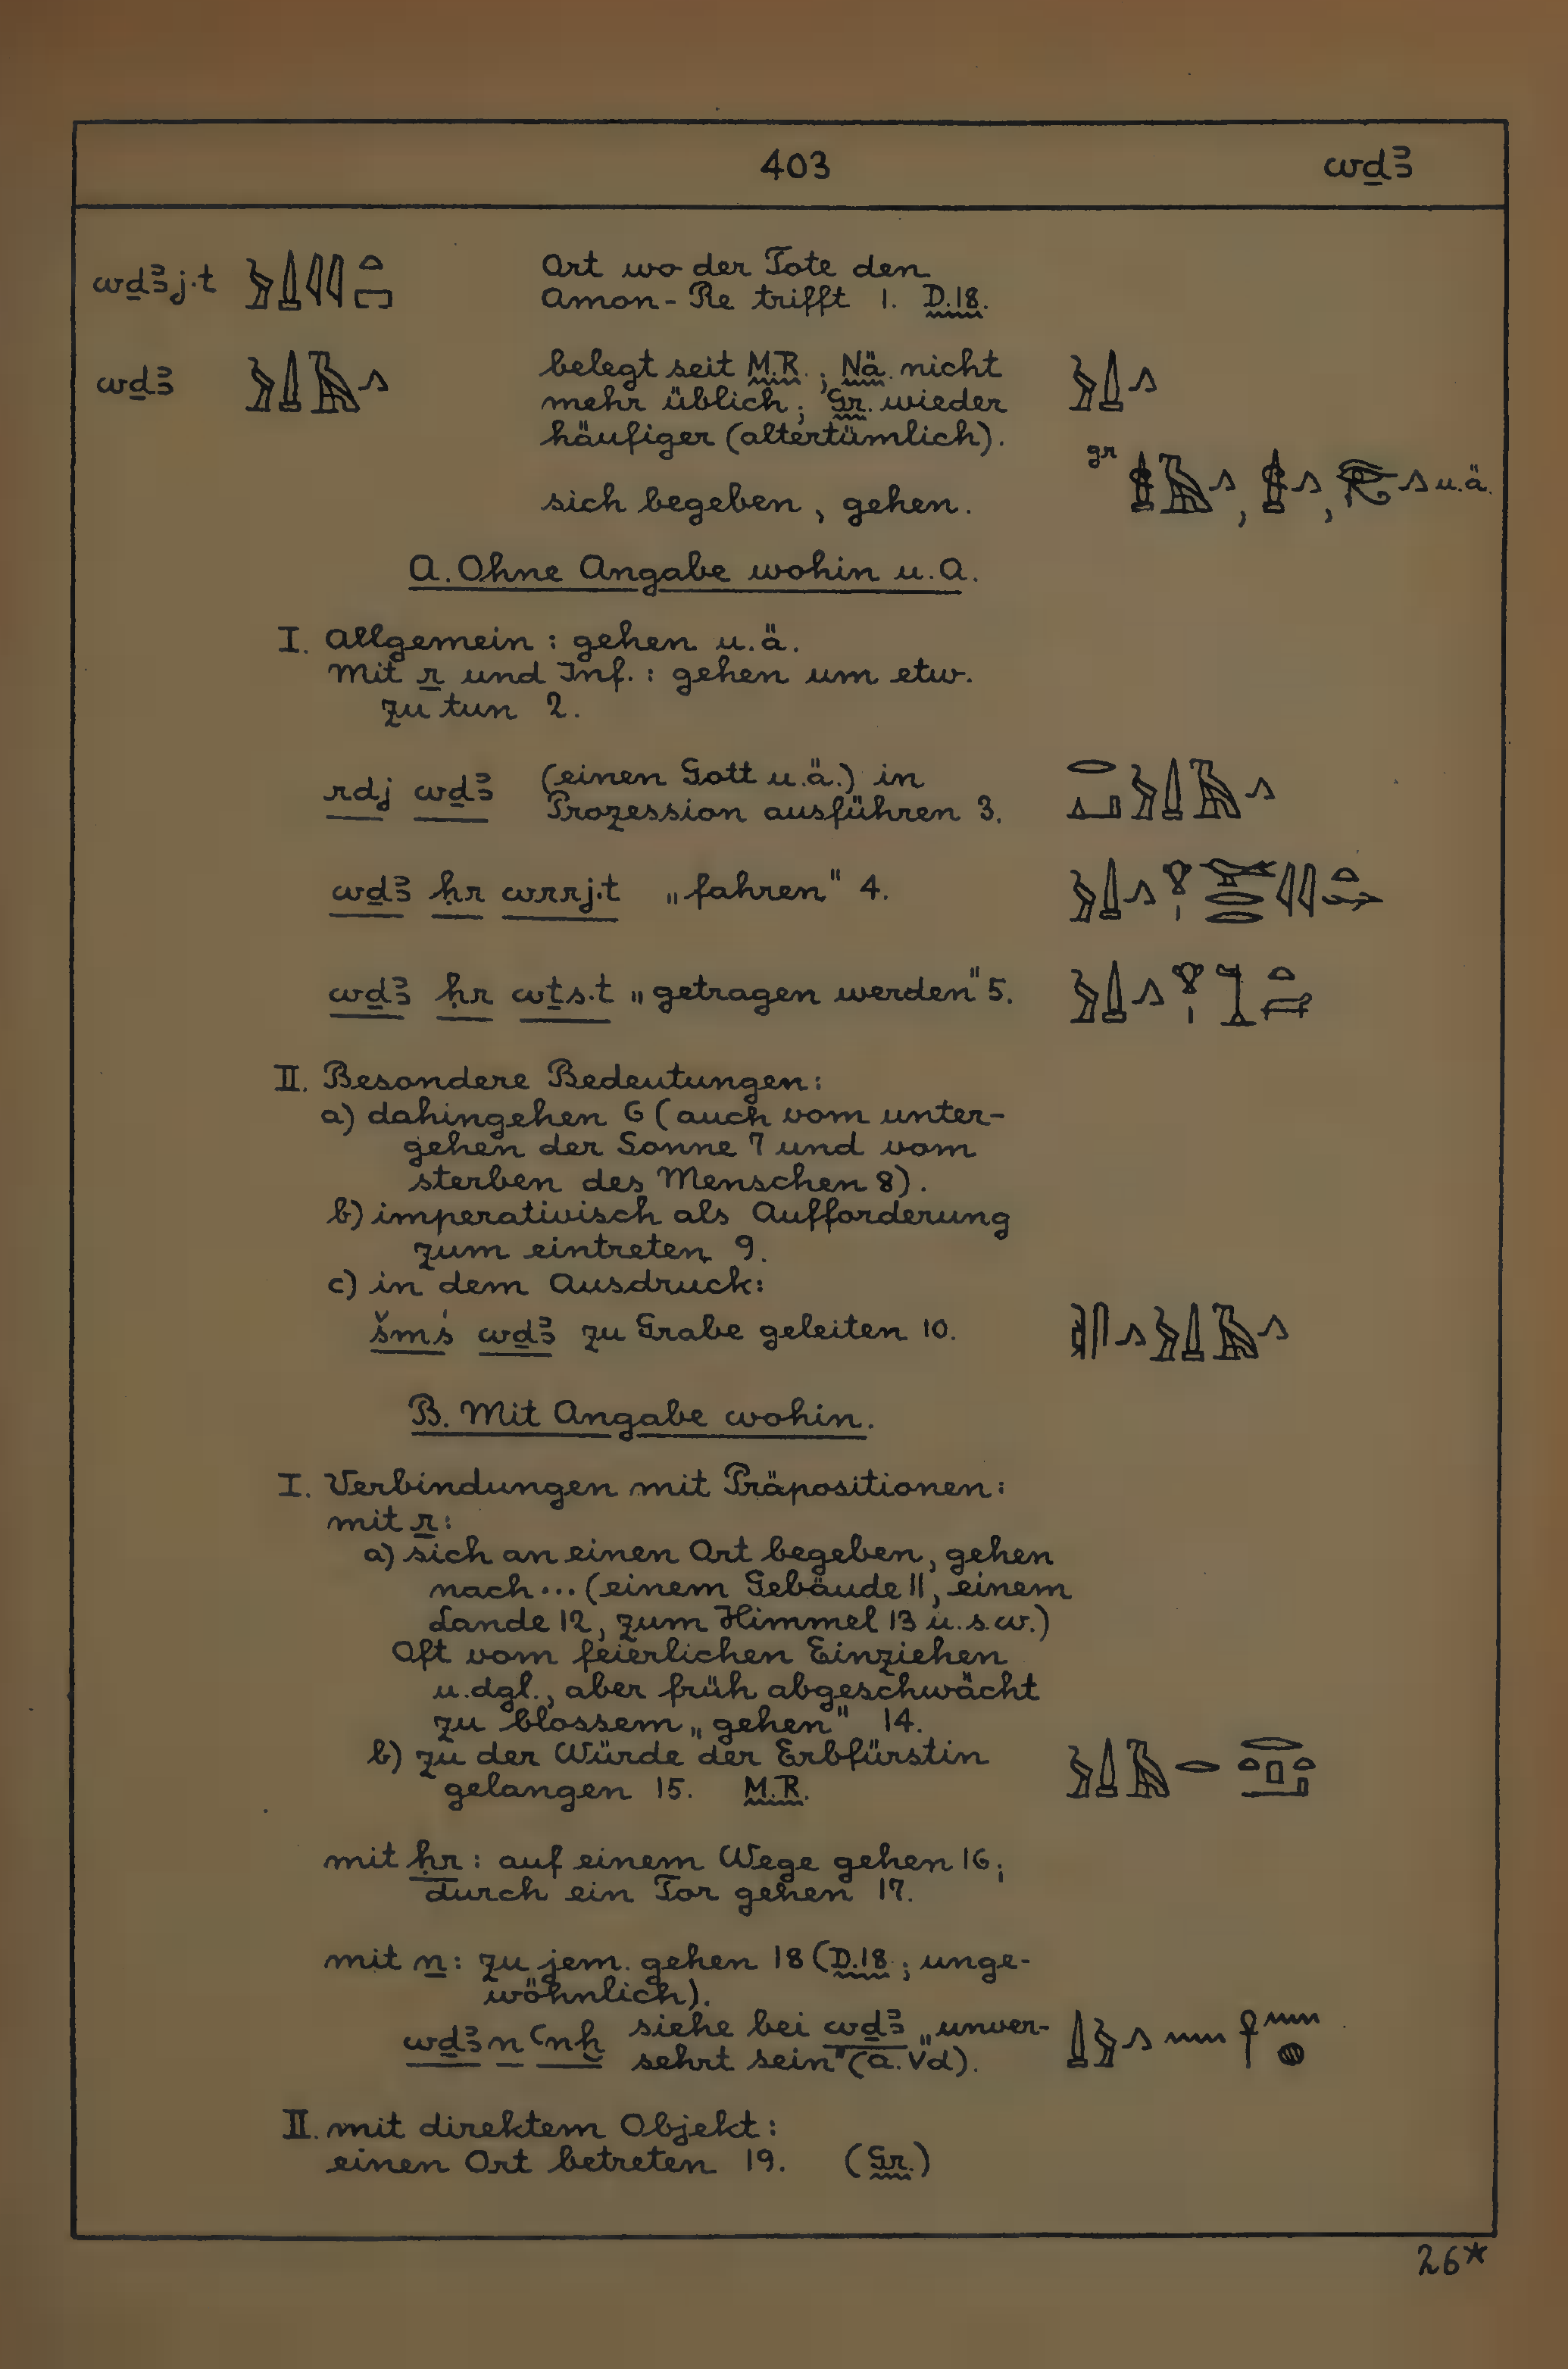 403 wḏꜣ
wḏꜣj.t Ort wo der Tote den
Amon-Re trifft 1. D.18.
wḏꜣ belegt seit M.R.; Nä. nicht
mehr üblich; Gr. wieder
häufiger (altertümlich).
gr u.ä.
sich begeben, gehen.
A. Ohne Angabe wohin u.A.
I. Allgemein: gehen u.ä.
Mit r und Inf.: gehen um etw.
zu tun 2.
rdj wḏꜣ (einen Gott u.ä.) in
Prozession ausführen 3.
wḏꜣ ḥr wrrj.t „fahren" 4.
wḏꜣ ḥr wṯs.t „getragen werden" 5.
II. Besondere Bedeutungen:
a) dahingehen 6 (auch vom unter-
gehen der Sonne 7 und vom
sterben des Menschen 8).
b) imperativisch als Aufforderung
zum eintreten 9.
c) in dem Ausdruck:
šmś wḏꜣ zu Grabe geleiten 10.
B. Mit Angabe wohin.
I. Verbindungen mit Präpositionen:
mit r:
a) sich an einen Ort begeben, gehen
nach... (einem Gebäude 11, einem
Lande 12, zum Himmel 13 u.s.w.)
Oft vom feierlichen Einziehen
u.dgl., aber früh abgeschwächt
zu blossem „gehen" 14.
b) zu der Würde der Erbfürstin
gelangen 15. M.R.
mit ḥr: auf einem Wege gehen 16;
durch ein Tor gehen 17.
mit n: zu jem. gehen 18 (D.18; unge-
wöhnlich).
wḏꜣ n ꜥnḫ siehe bei wḏꜣ „unver-
sehrt sein" (A. V d).
II. mit direktem Objekt:
einen Ort betreten 19. (Gr.)
26*